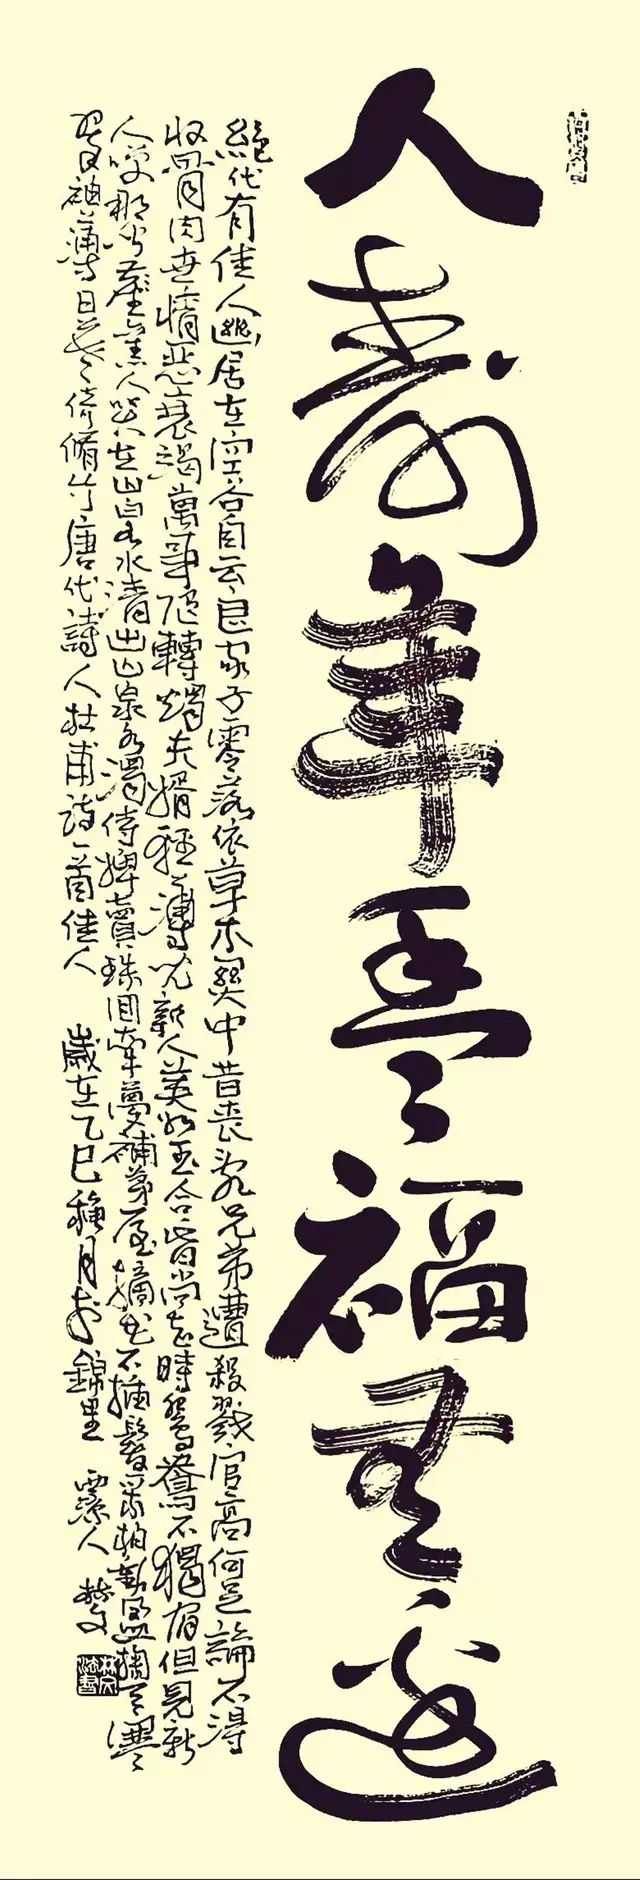 人寿年豐福無邊
絕代有佳人幽居在空谷自云良家子零落依草木關中昔喪亂兄弟遭殺戮官高何足論不得
收骨肉世情惡衰歇萬事隨轉燭夫婿輕薄兒新人美如玉合昏尚知時鴛鴦不獨宿但見新
人笑那聞舊人哭在山泉水清出山泉水濁侍婢賣珠回牽蘿補茅屋摘花不插髮采柏動盈掬天寒
翠袖薄日暮倚脩竹唐代詩人杜甫詩一首佳人 歲在乙巳穐月於錦里